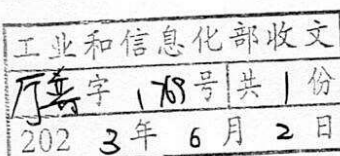 工业和信息化部收文
厅 字 1769号 共1份
2023年6月2日